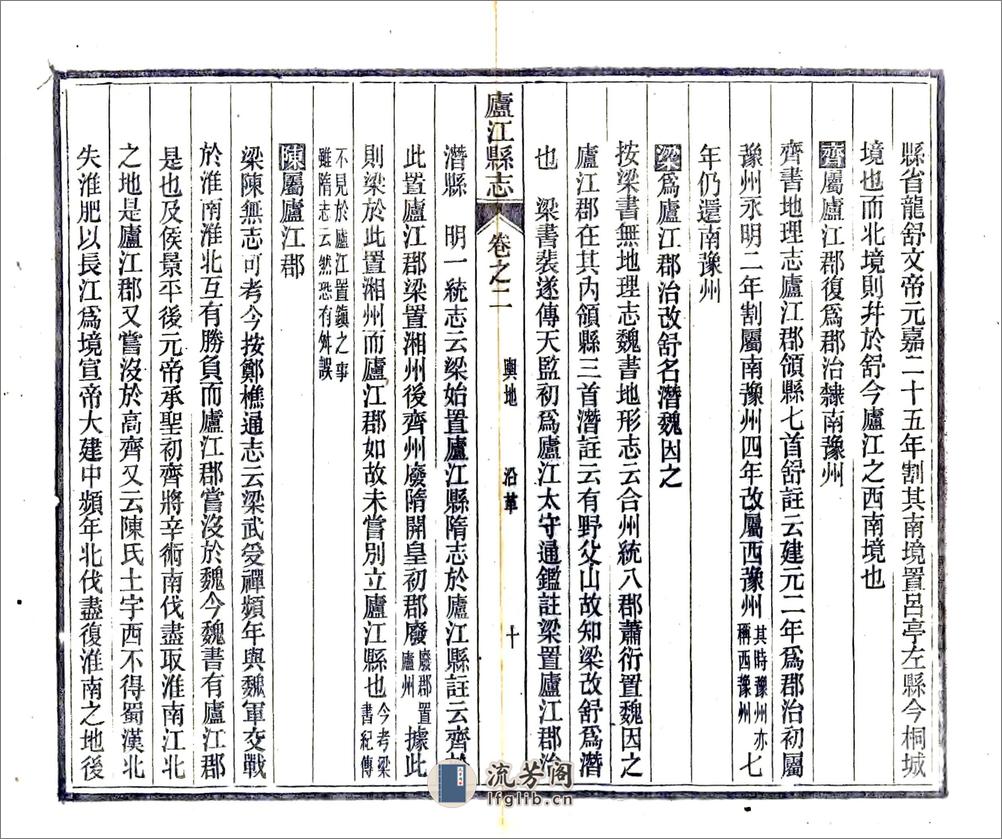 縣省龍舒文帝元嘉二十五年割其南境置呂亭左縣今桐城
境也而北境則幷於舒今廬江之西南境也
齊屬廬江郡復爲郡治隸南豫州
齊書地理志廬江郡領縣七首舒註云建元二年爲郡治初屬
豫州永明二年割屬南豫州四年改屬西豫州其時豫州亦稱西豫州七
年仍還南豫州
梁爲廬江郡治改舒名潛魏因之
按梁書無地理志魏書地形志云合州統八郡蕭衍置魏因之
廬江郡在其內領縣三首潛註云有野父山故知梁改舒爲潛
也　梁書裴遂傳天監初爲廬江太守通鑑註梁置廬江郡治
廬江縣志
卷之二
輿地　沿革
十
潛縣　明一統志云梁始置廬江縣隋志於廬江縣註云齊於
此置廬江郡梁置湘州後齊州廢隋開皇初郡廢廢郡置廬州據此
則梁於此置湘州而廬江郡如故未嘗別立廬江縣也今考梁書紀傳
不見於廬江置鎭之事雖隋志云然恐有舛誤
陳屬廬江郡
梁陳無志可考今按鄭樵通志云梁武受禪頻年與魏軍交戰
於淮南淮北互有勝負而廬江郡嘗沒於魏今魏書有廬江郡
是也及侯景平後元帝承聖初齊將辛術南伐盡取淮南江北
之地是廬江郡又嘗沒於高齊又云陳氏土宇西不得蜀漢北
失淮肥以長江爲境宣帝大建中頻年北伐盡復淮南之地後
流芳阁
lfglib.cn